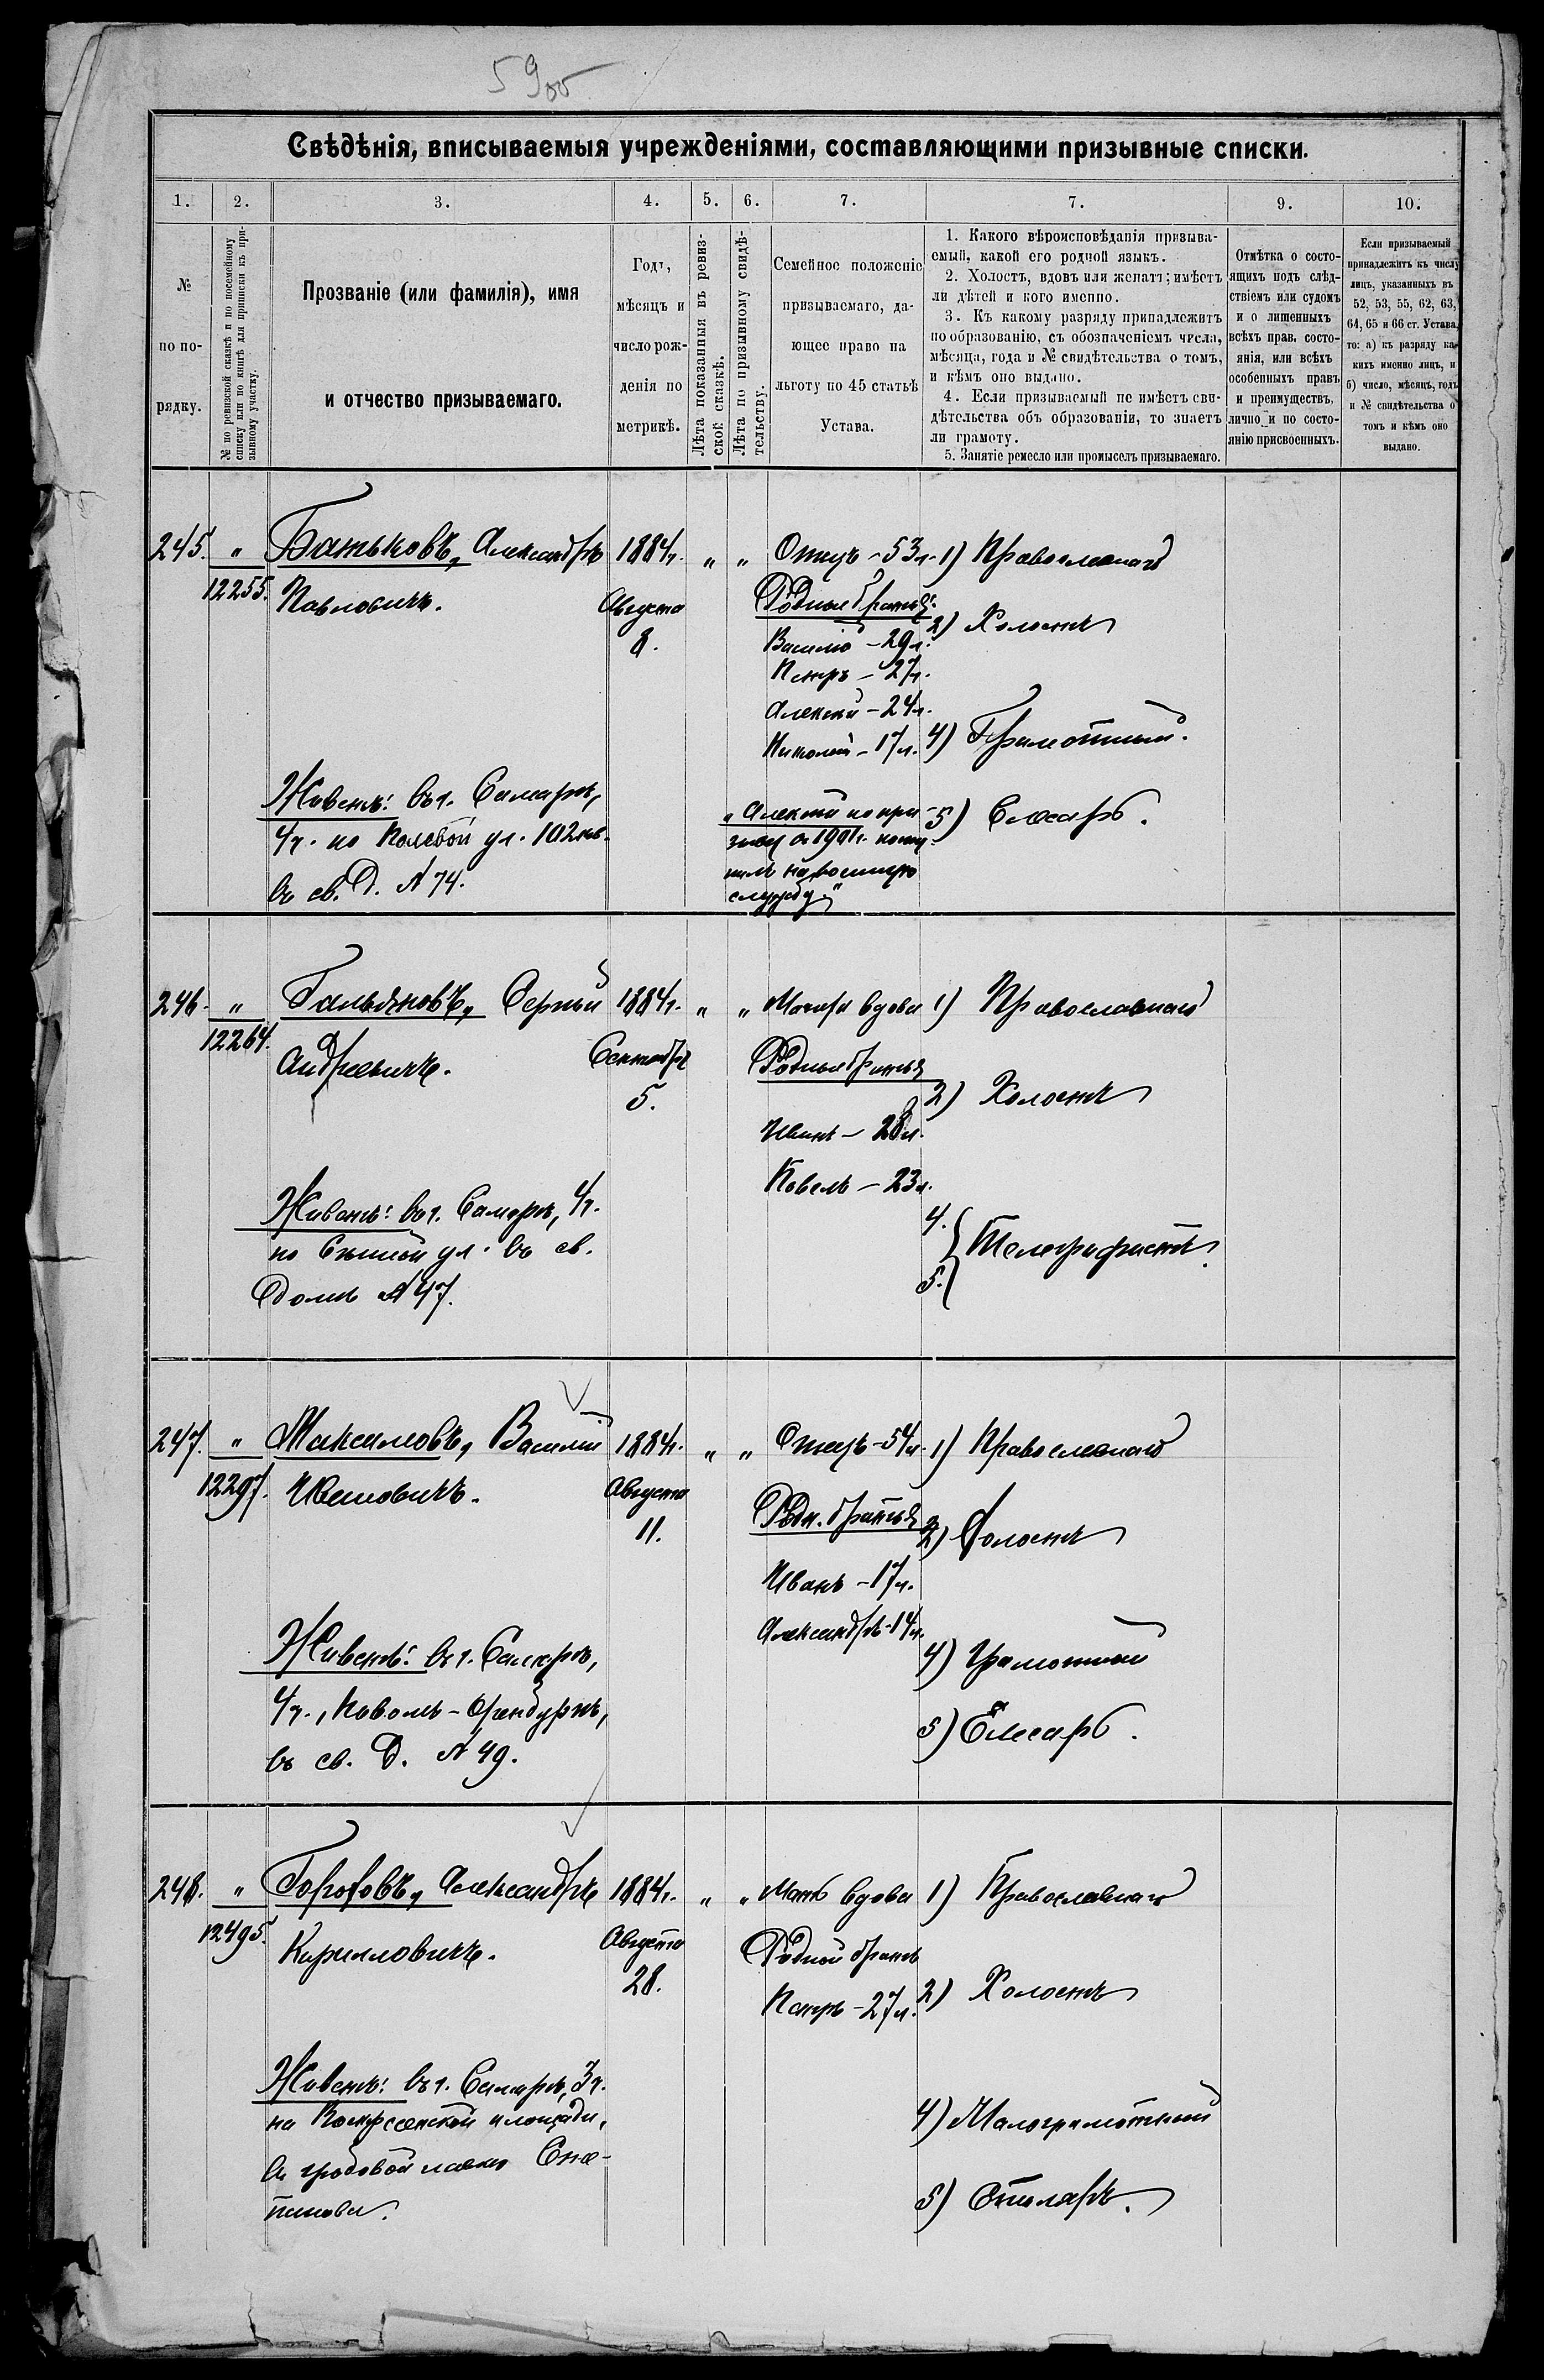 59об
Свѣдѣнія, вписываемыя учрежденіями, составляющими призывные списки.
1. 2. 3. 4. 5. 6. 7. 7. 9. 10.
№
по по-
рядку.
№ по ревизской сказкѣ и по посемейному
списку или по книгѣ для приписки къ при-
зывному участку.
Прозваніе (или фамилія), имя
и отчество призываемаго.
Годъ,
мѣсяцъ и
число рож-
денія по
метрикѣ.
Лѣта показанныя въ ревиз-
ской сказкѣ.
Лѣта по призывному свидѣ-
тельству.
Семейное положеніе
призываемаго, да-
ющее право на
льготу по 45 статьѣ
Устава.
1. Какого вѣроисповѣданія призыва-
емый, какой его родной языкъ.
2. Холостъ, вдовъ или женатъ; имѣетъ
ли дѣтей и кого именно.
3. Къ какому разряду принадлежитъ
по образованію, съ обозначеніемъ числа,
мѣсяца, года и № свидѣтельства о томъ,
и кѣмъ оно выдано.
4. Если призываемый не имѣетъ сви-
дѣтельства объ образованіи, то знаетъ
ли грамоту.
5. Занятіе ремесло или промыселъ призываемаго.
Отмѣтка о состо-
ящихъ подъ слѣд-
ствіемъ или судомъ
и о лишенныхъ
всѣхъ прав. состо-
янія, или всѣхъ
особенныхъ правъ
и преимуществъ,
лично и по состо-
янію присвоенныхъ.
Если призываемый
принадлежитъ къ числу
лицъ, указанныхъ въ
52, 53, 55, 62, 63,
64, 65 и 66 ст. Устава,
то: а) къ разряду ка-
кихъ именно лицъ, и
б) число, мѣсяцъ, годъ
и № свидѣтельства о
томъ и кѣмъ оно
выдано.
245. "
12255.
Батьковъ, Александръ
Павловичъ.
Живетъ: въ г. Самарѣ,
4ч. по Полевой ул. 102 кв.
въ св. д. № 74.
1884г.
Августа
8.
" "
Отецъ – 53л.
Родные братья:
Василій – 29л.
Петръ – 27л.
Алексѣй – 24л.
Николай – 17л.
"Алексѣй по при-
зыву въ 1901г. посту-
пилъ на военную
службу."
1) Православнаго
2) Холостъ
4) Грамотный.
5) Слесарь.
246. "
12264.
Гальяновъ, Сергѣй
Андреевичъ.
Живетъ: въ г. Самарѣ, 4ч.
по Сѣнной ул. въ св.
домѣ № 47.
1884г.
Сентября
5.
" "
вдова
Родные братья
Иванъ – 28л.
Павелъ – 23л.
1) Православнаго
2) Холостъ
4.
5.
Телеграфистъ.
247. "
12297.
Максимовъ, Василій
Ивановичъ.
Живетъ: въ г. Самарѣ,
4ч., Новомъ-Оренбургѣ,
въ св. д. № 49.
1884г.
Августа
11.
" "
Отецъ – 54л.
Родн. братья
Иванъ – 17л.
Александръ – 14л.
1) Православнаго
2) Холостъ
4) Грамотный
5) Слесарь.
248. "
12495.
Александръ
Кирилловичъ.
Живетъ: въ г. Самарѣ, 3ч.
на Воскресенской площади,
въ гробовой лавкѣ
1884г.
Августа
28.
" "
Мать вдова
Родной братъ
Петръ – 27л.
1) Православнаго
2) Холостъ
4) Малограмотный
5) Столяръ.